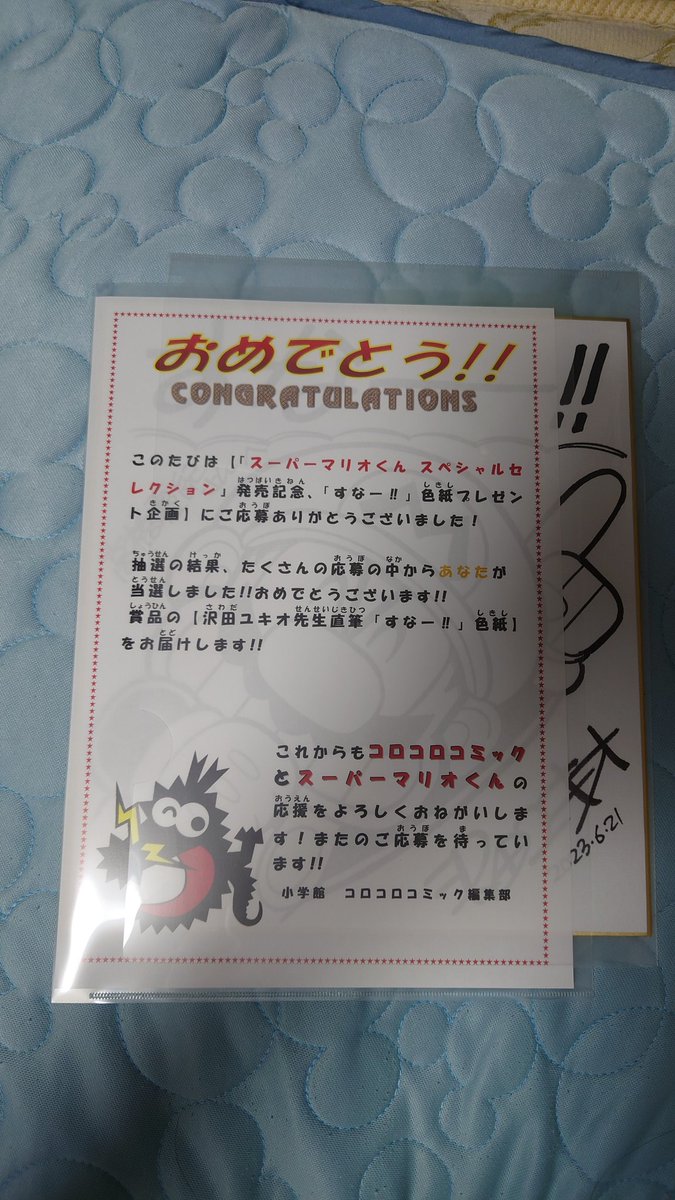 おめでとう!!
CONGRATULATIONS
このたびは【「スーパーマリオくん スペシャルセ
レクション」発売記念、「すなー!!」色紙プレゼン
ト企画】にご応募ありがとうございました!
抽選の結果、たくさんの応募の中からあなたが
当選しました!!おめでとうございます!!
賞品の【沢田ユキオ先生直筆「すなー!!」色紙】
をお届けします!!
これからもコロコロコミック
とスーパーマリオくんの
応援をよろしくおねがいしま
す!またのご応募を待ってい
ます!!
小学館 コロコロコミック編集部
!!
23.6.21